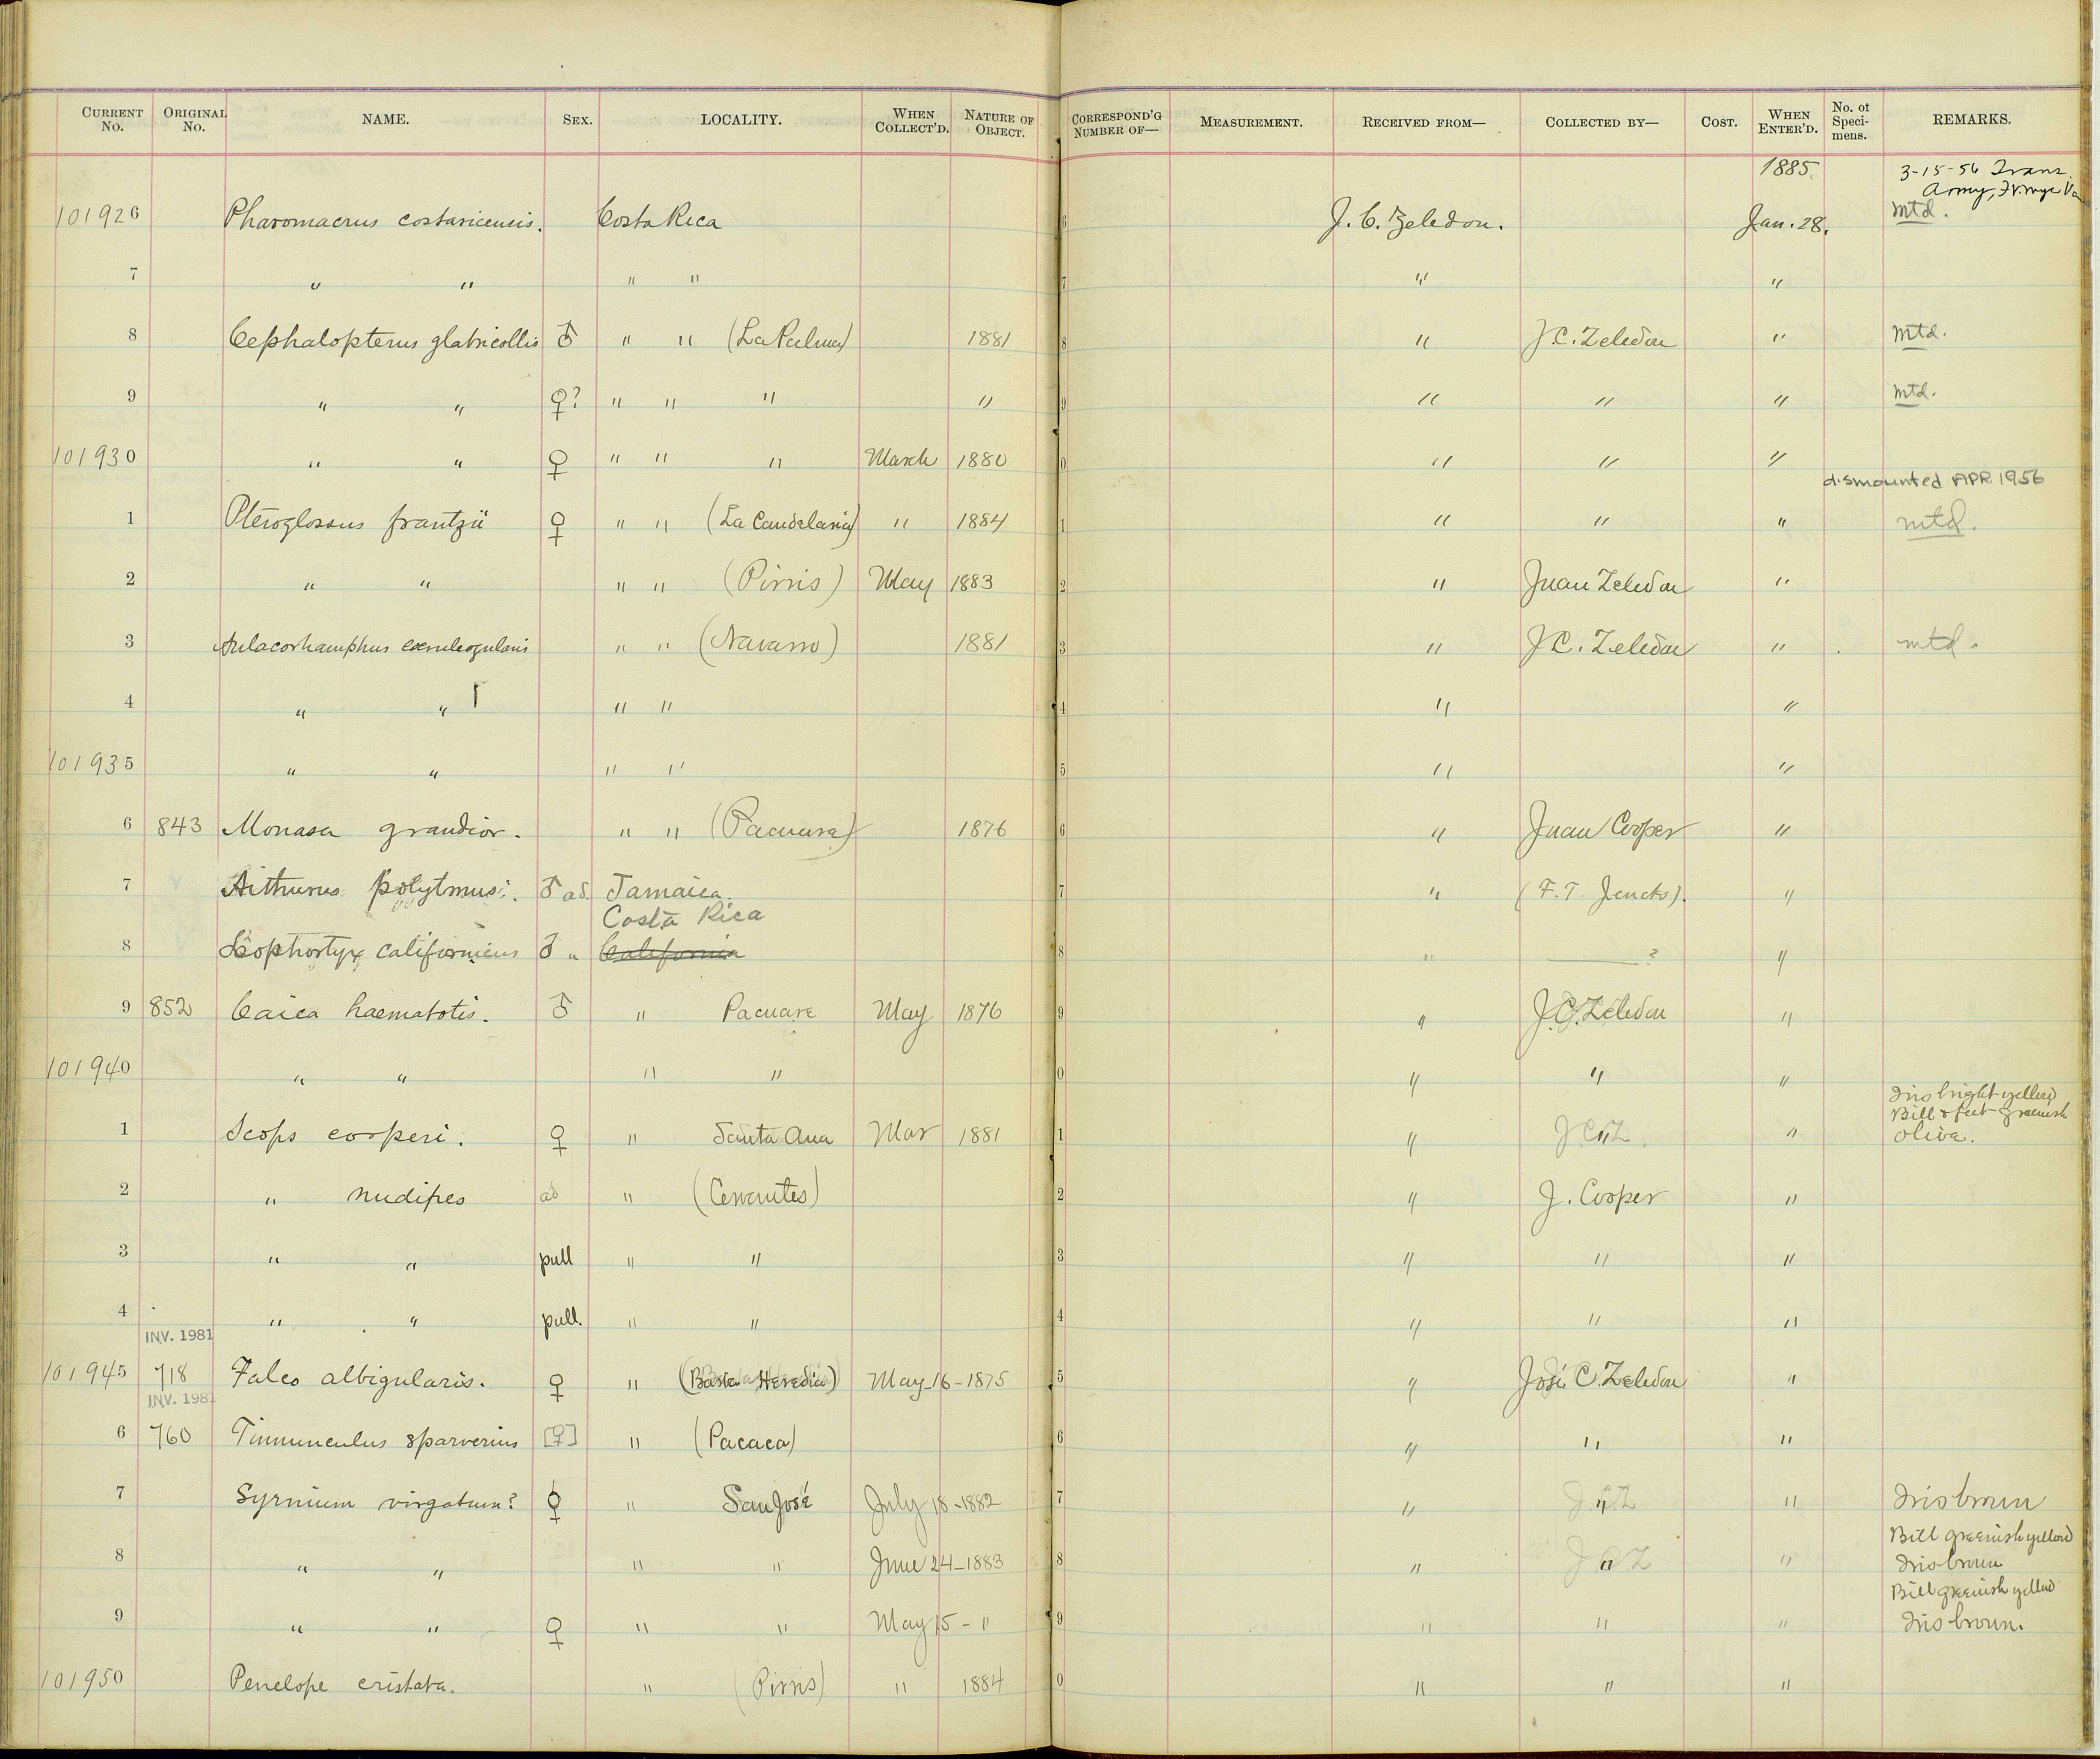 CURRENT No. ORIGINAL No. NAME. SEX. LOCALITY. WHEN COLLECT'D. NATURE OF OBJECT. CORRESPOND'G NUMBER OF— MEASUREMENT. RECEIVED FROM— COLLECTED BY— COST. WHEN ENTER'D. No. of Speci-mens. REMARKS.
1885. 3-15-56 Trans.
Army,
101926 Pharomacrus costaricensis. Costa Rica 6 J. C. Zeledon. Jan. 28. mtd.
7 " " " " 7 " "
8 Cephalopterus glabricollis ♂ " " (La Palma) 1881 8 " J. C. Zeledon " mtd.
9 " " ♀? " " " " 9 " " " mtd.
101930 " " ♀ " " " March 1880 0 " " "
dismounted APR 1956
1 Pteroglossus frantzii ♀ " " (La Candelaria) " 1884 1 " " " mtd.
2 " " " " (Pirris) May 1883 2 " Juan Zeledon "
3 Aulacorhamphus caeruleogularis " " (Navarro) 1881 3 " J. C. Zeledon " mtd.
4 " " " " 4 " "
101935 " " " " 5 " "
6 843 Monasa grandior. " " (Pacuare) 1876 6 " Juan Cooper "
7 Aithurus polytmus. ♂ ad. Jamaica. 7 " (F. T. Jencks). "
Costa Rica
8 Lophortyx californicus ♂ " California 8 " ? "
9 852 Caica haematotis. ♂ " Pacuare May 1876 9 " J. C. Zeledon "
101940 " " " " 0 " " "
Iris bright yellow
Bill & feet greenish
1 Scops cooperi. ♀ " Santa Ana Mar 1881 1 " J C Z " " olive.
2 " nudipes ad " (Cervantes) 2 " J. Cooper "
3 " " pull " " 3 " " "
4 " " pull. " " 4 " " "
INV. 1981
101945 718 Falco albigularis. ♀ " (Barba Heredia) May 16-1875 5 " José C. Zeledon "
INV. 1981
6 760 Tinnunculus sparverius [♀] " (Pacaca) 6 " " "
7 Syrnium virgatum? ♀ " San José July 18-1882 7 " J C Z " " Iris brown
Bill greenish yellow
8 " " " " June 24-1883 8 " J C Z " " Iris brown
Bill greenish yellow
9 " " ♀ " " May 15 - " 9 " " " Iris brown.
101950 Penelope cristata. " (Pirris) " 1884 0 " " "